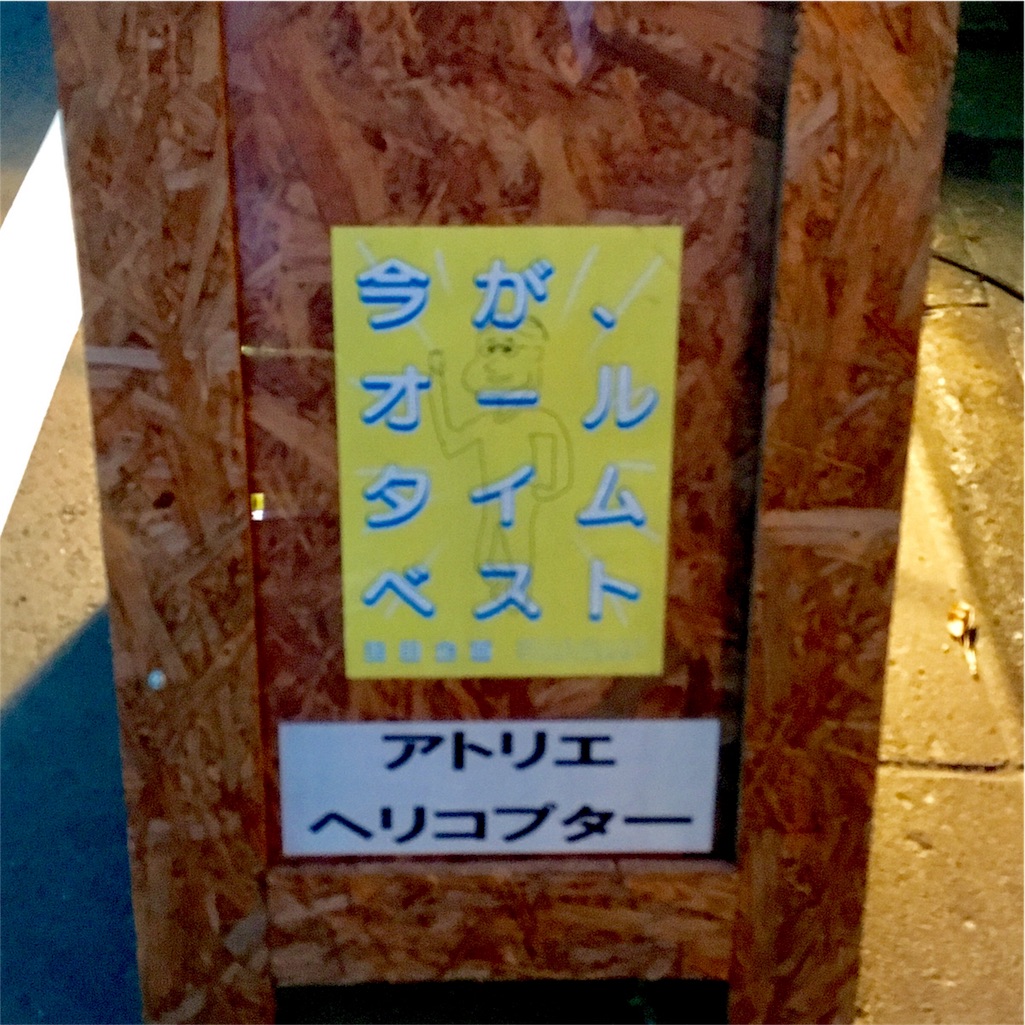 今が、
オール
タイム
ベスト
アトリエ
ヘリコプター